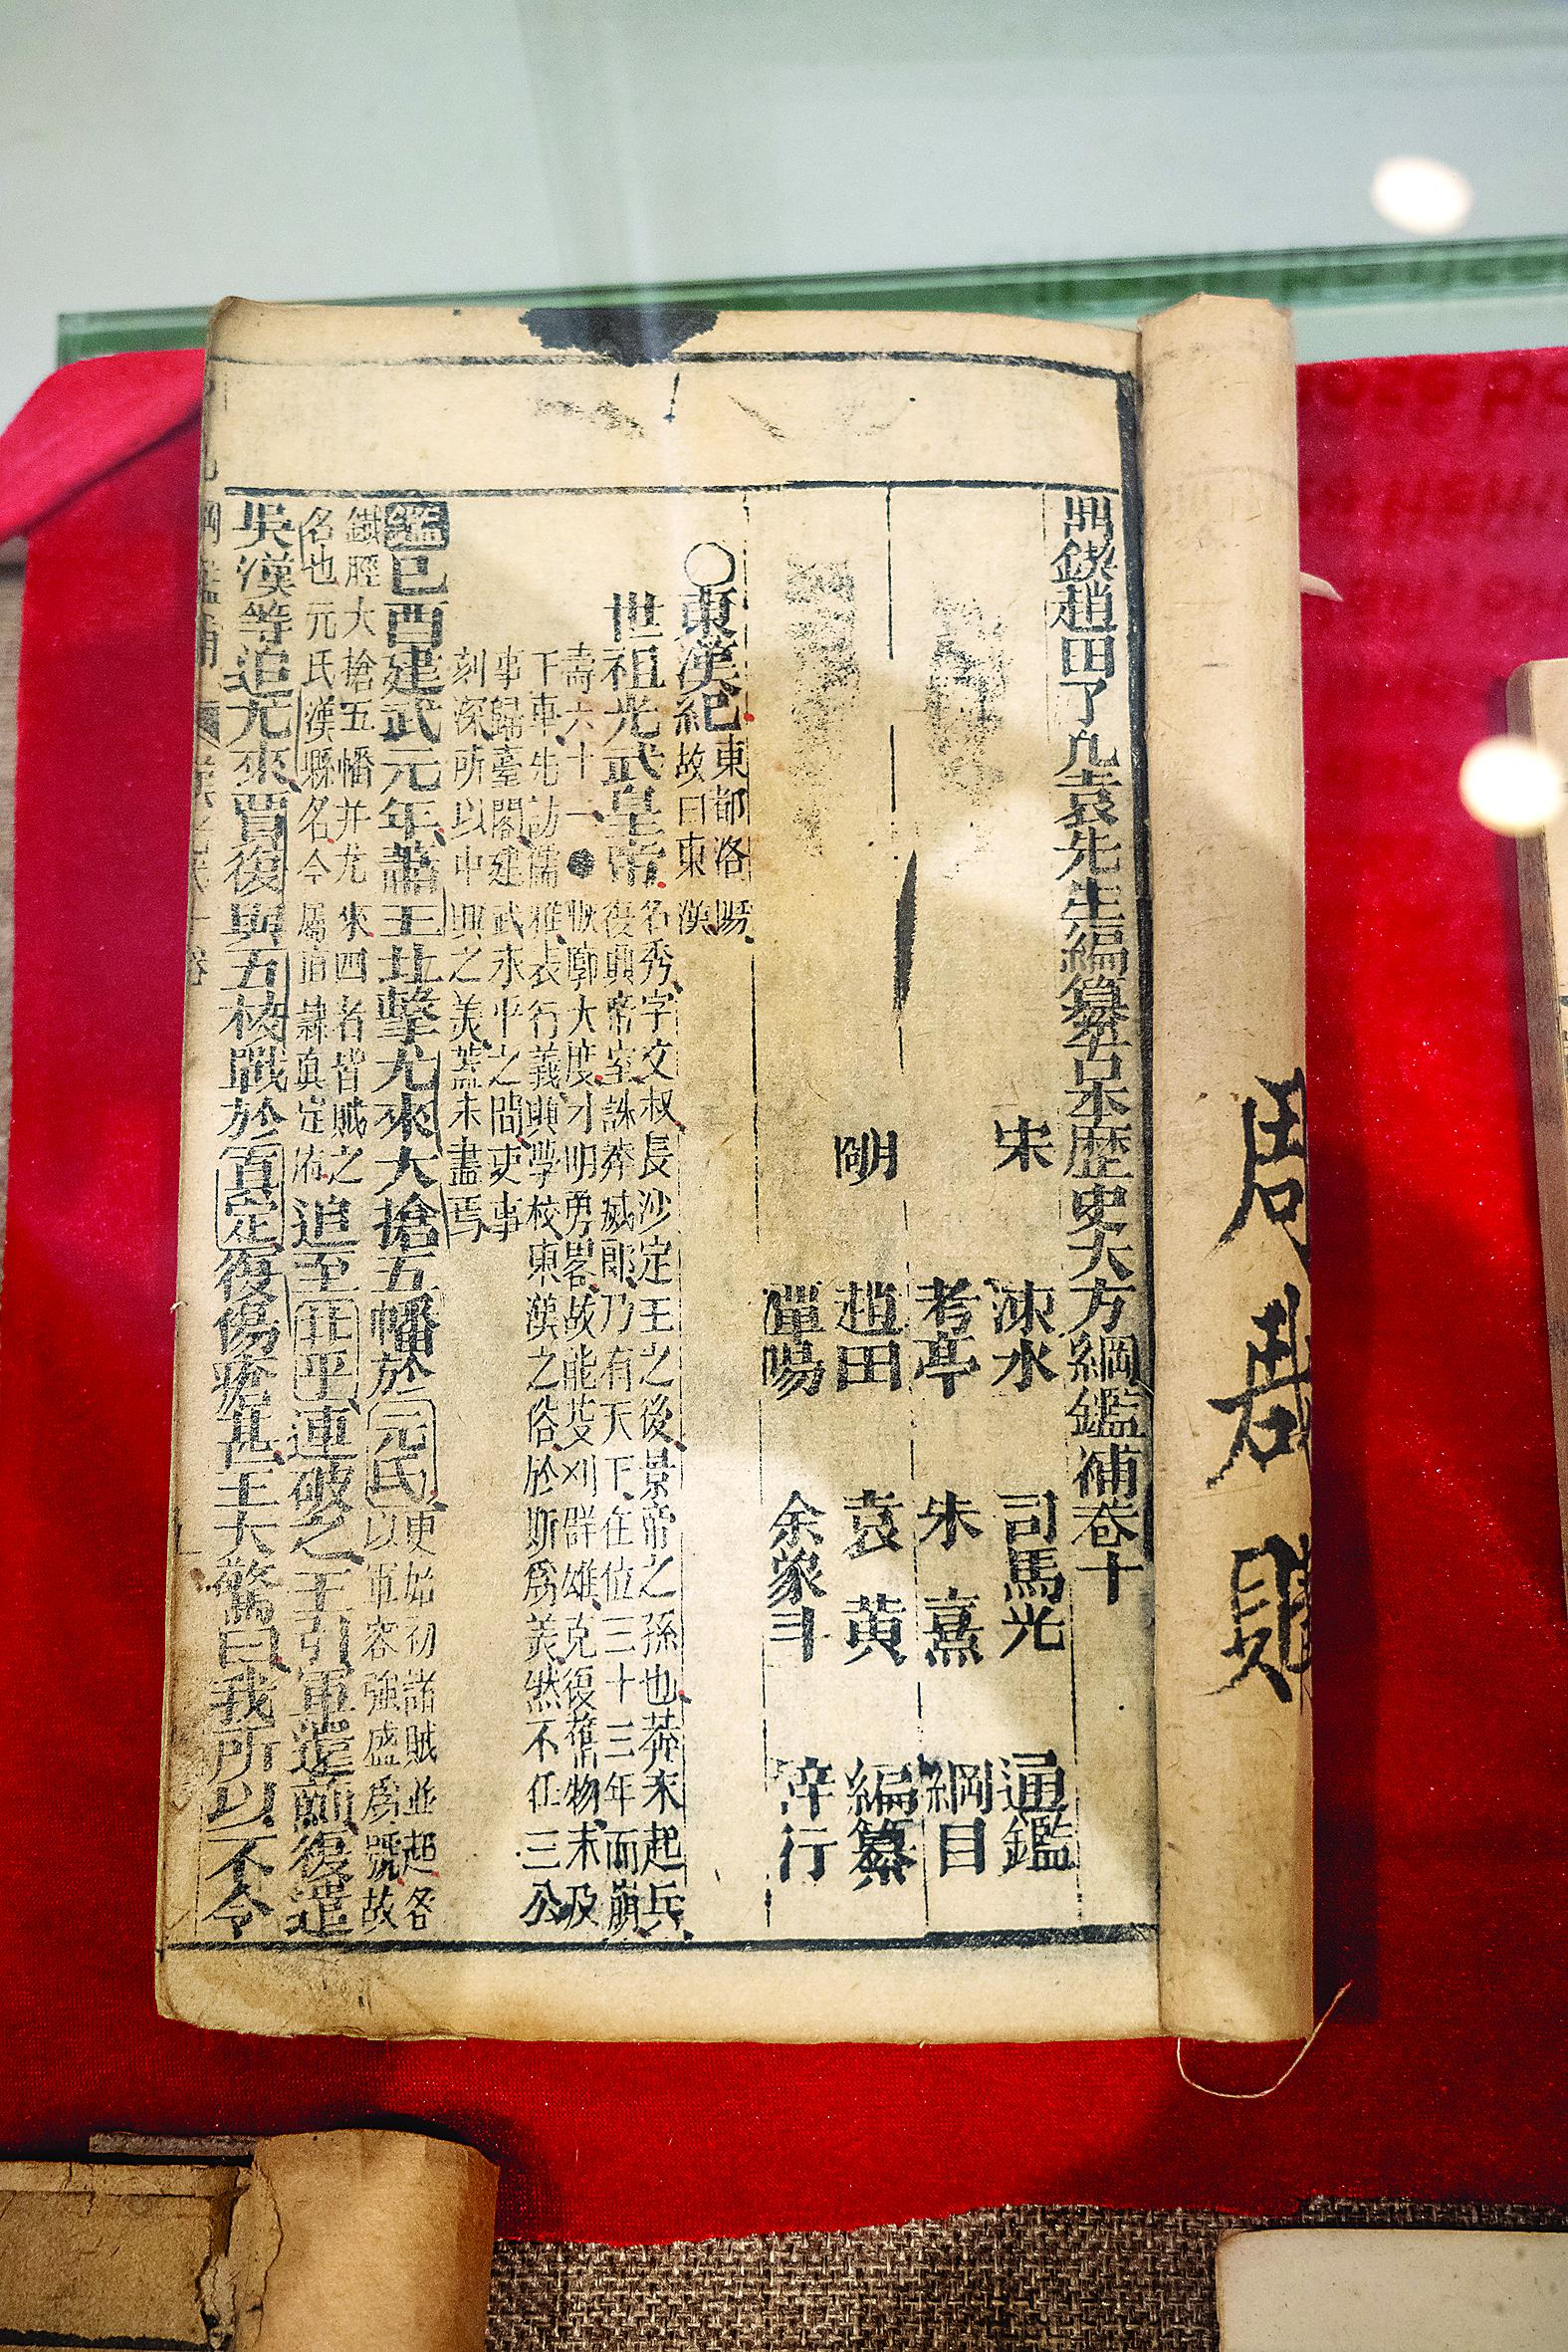 周哉賜
鼎鋟趙田了凡袁先生編纂古本歷史大方綱鑑補卷十
宋 涑水 司馬光 通鑑
考亭 朱熹 綱目
明 趙田 袁黃 編纂
潭陽 余象斗 梓行
○東漢紀 東都洛陽
故曰東漢
世祖光武皇帝 名秀字文叔長沙定王之後景帝之孫也莽末起兵
復興帝室誅莽滅郎乃有天下在位三十三年而崩
壽六十一 恢廓大度才明勇畧故能芟刈群雄克復舊物未及
下車先訪儒雅表行義興學校東漢之俗於斯爲美然不任三公
事歸臺閣建武永平之間吏事
刻深所以中興之美蓋未盡焉
鑑己酉建武元年蕭王北擊尤來大搶五幡於元氏 更始初諸賊並起各
以軍容強盛爲號故
鐵脛大搶五幡并尤來四者皆賊之
名也元氏漢縣名今屬直隷真定府 追至北平連破之王引軍還薊復遣
吳漢等追尤來賈復與五校戰於眞定復傷瘡甚王大驚曰我所以不令